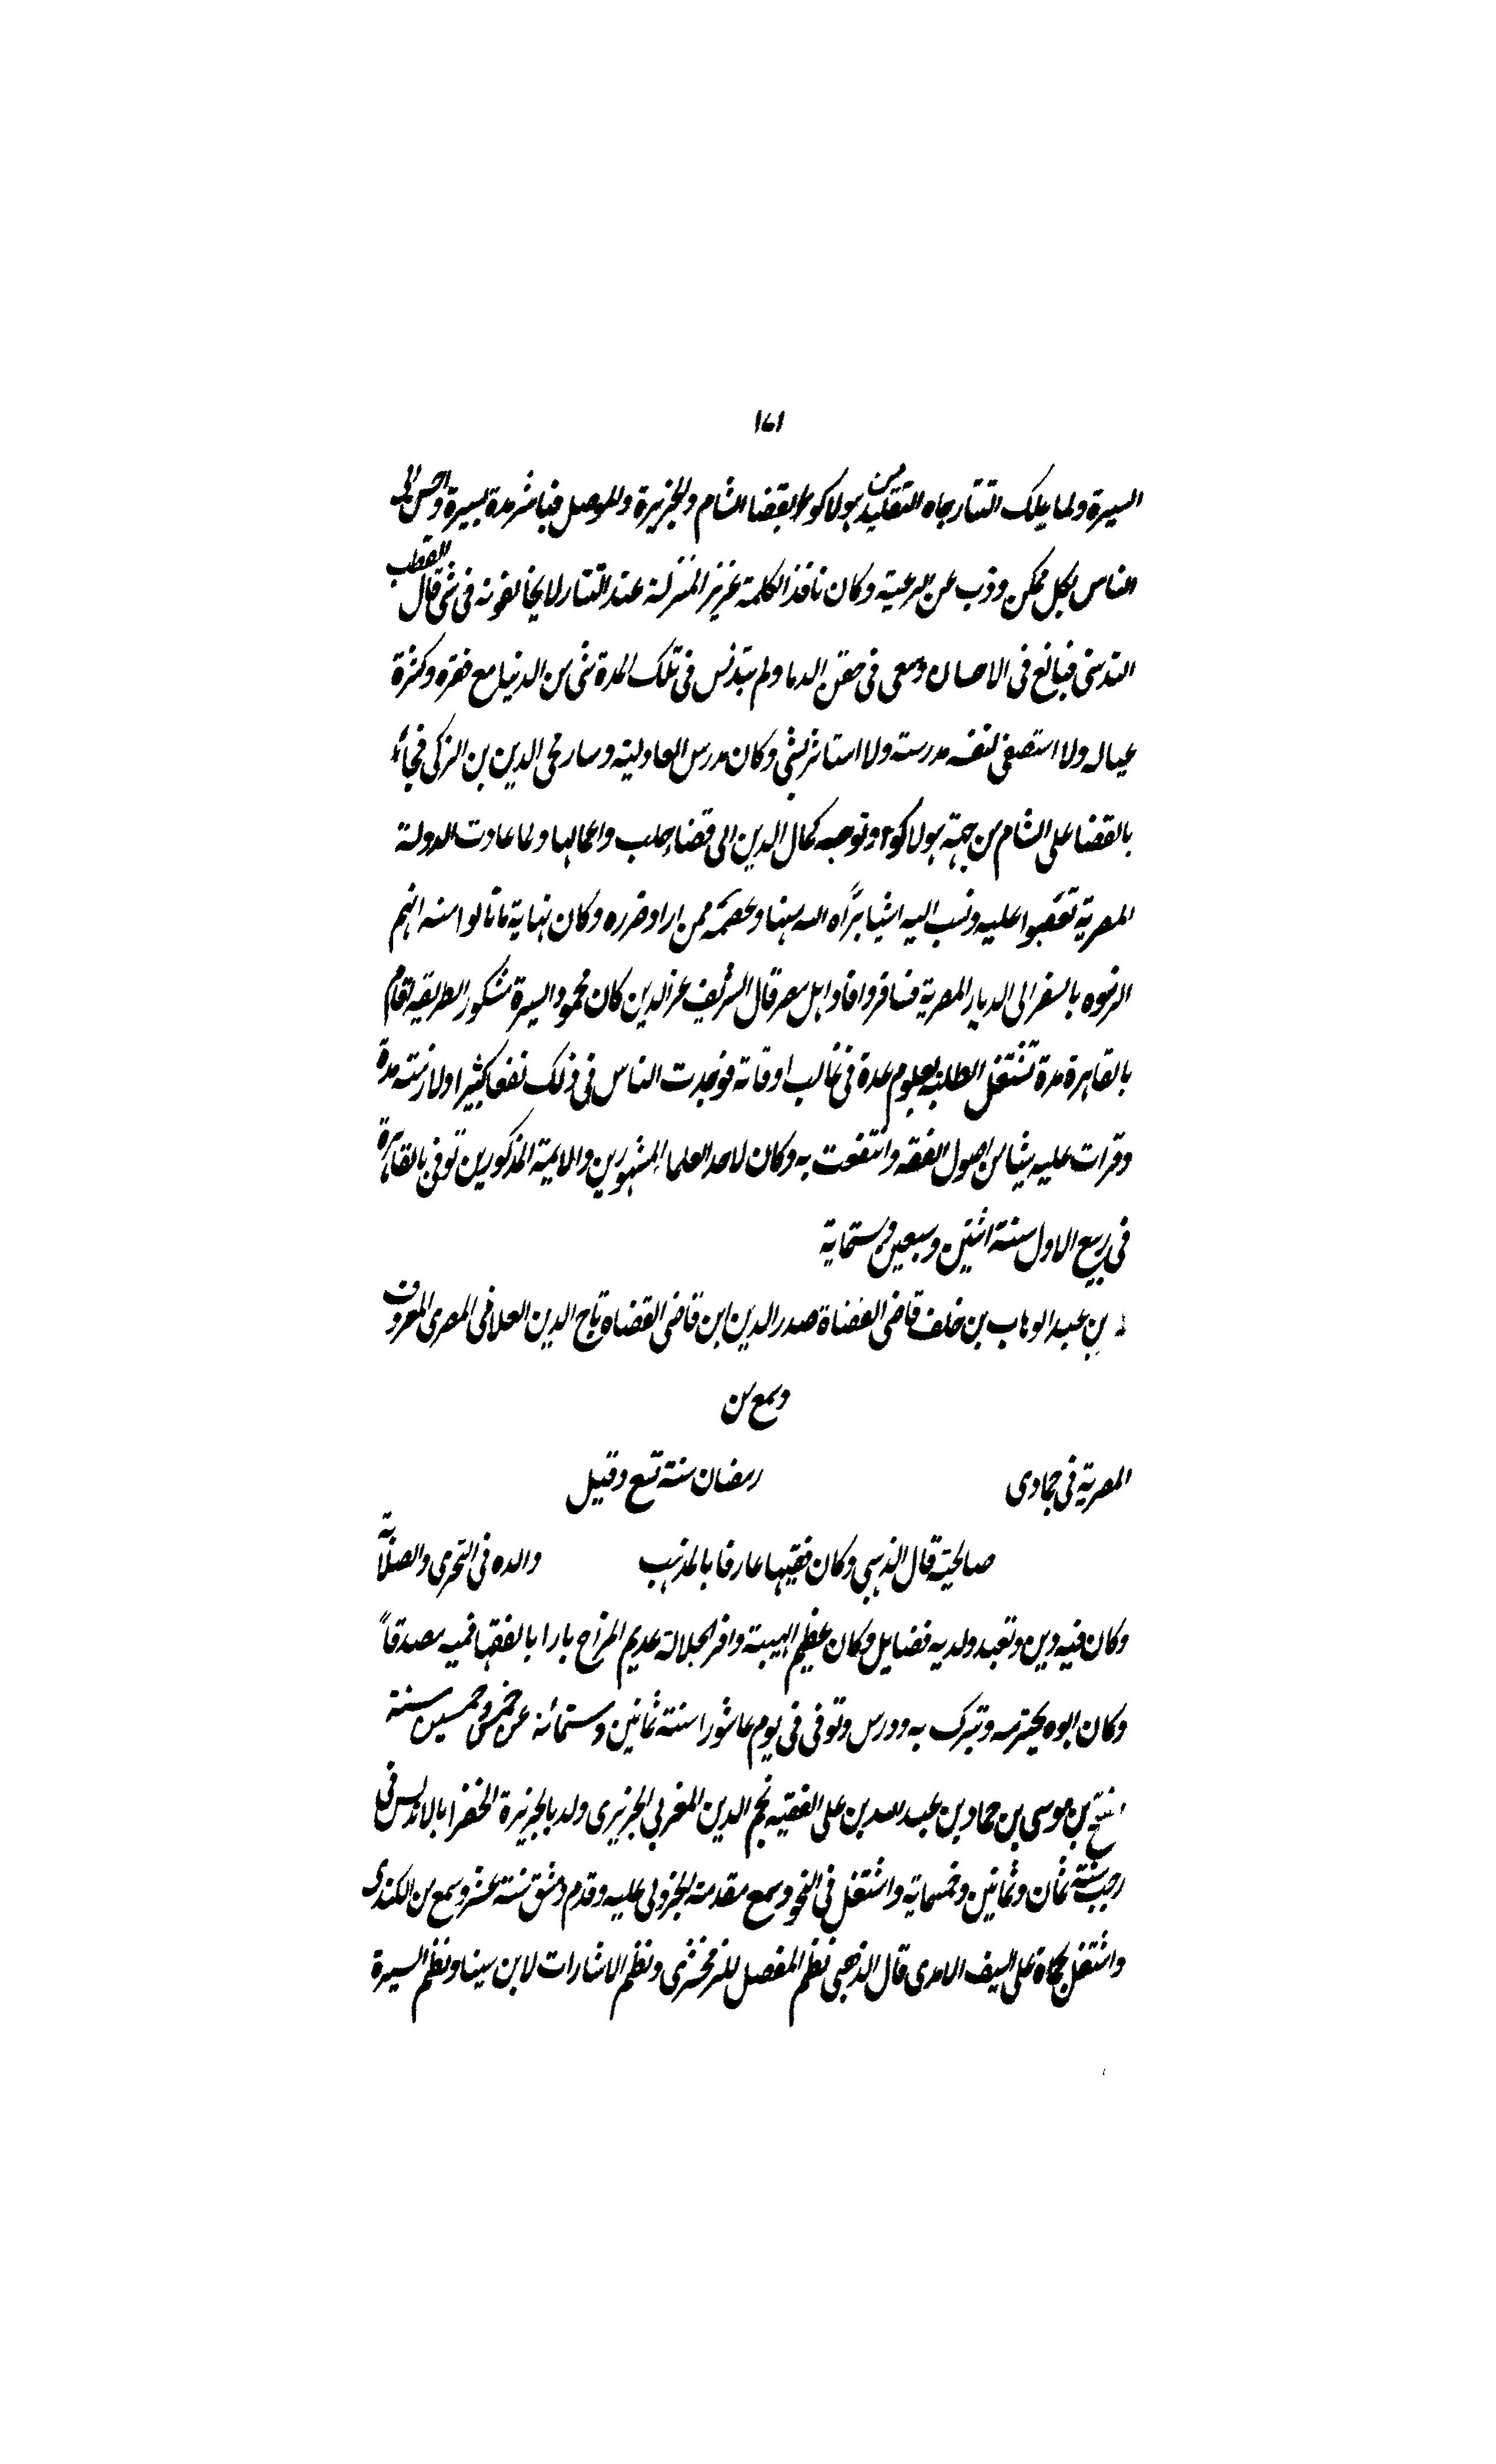 ١٧١
السيرة ولما يملك التتار جاه التقليد من هولاكو بقضا الشام والجزيرة والموصل فباشر مدة يسيرة واحسن الى
الناس بكل ممكن وذب عن الرعية وكان نافذ الكلمة عزيز المنزلة عند التتار لا يخالفونه فى شى قال القطب
فبالغ فى الاحسان وسعى فى حقن الدما ولم يتدنس فى تلك المدة شى من الدنيا مع فقره وكثرة
عياله ولا استصفى لنفسه مدرسته ولا استاثر بشى وكان مدرس العادلية وسار محى الدين بن الزكى فجاء
بالقضا على الشام من جهة هولاكو وتوجه كمال الدين الى قضاء حلب واعمالها ولما عادت الدولة
المصرية تعصبوا عليه ونسب اليه اشيا برأه الله منها وعصمه ممن اراد ضرره وكان نهاية ما نالوا منه انهم
الزموه بالسفر الى الديار المصرية فسافر وافاد اهل مصر قال الشريف عز الدين كان محمود السيرة مشكور الطريقه اقام
بالقاهرة مدة تشتغل الطلبة بعلوم عدة فى غالب اوقاته فوجدت الناس فى ذلك نفعا كثيرا ولازمته مدة
وقرات عليه شيا من اصول الفقه وانتفعت به وكان لاحد العلما المشهورين والايمة المذكورين توفى بالقاهرة
فى ربيع الاول سنة اثنتين وسبعين وستماية
بن عبد الوهاب بن خلف قاضى القضاة صدر الدين ابن قاضى القضاة تاج الدين العلافى المصرى المعروف
وسمع من
المصرية فى جمادى رمضان سنة تسع وقيل
صالحية قال الذهبى وكان فقيها عارفا بالمذهب والده فى التحرى والصلابة
وكان فيه دين وتعبد ولديه فضايل وكان عظيم الهيبة وافر الجلالة عديم المزاح بارا بالفقها فميه مصدقاً
وكان ابوه يحترمه ويتبرك به ودرس وتوفى فى يوم عاشورا سنة ثمانين وستمائه عن خمس وخمسين سنة
فتح بن موسى بن حماد بن عبد الله بن على الفقيه نجم الدين المغربى الجزيرى ولد بالجزيرة الخضرا بالاندلس فى
رجب سنة ثمان وثمانين وخمسماية واشتغل فى النحو وسمع مقدمة الجزولى عليه وقدم دمشق سنة عشر وسمع من الكندى
واشتغل بحماة على السيف الامدى قال الذهبى نظم المفصل للزمخشرى ونظم الاشارات لابن سينا ونظم السيرة